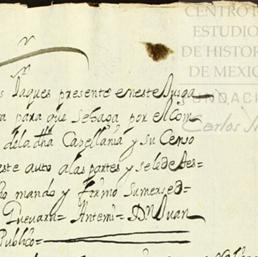 CENTRO
ESTUDIO
DE HISTOR
DE MEXIC
FUNDACI
Carlos
Jaques presente en este Juzga
ra para que se haga por el Con
de la dha Capellania y su Censo
este auto a las partes y se le de tes
do mando y firmo su merced
Guevara = Antemi = Dn Juan
Publico =